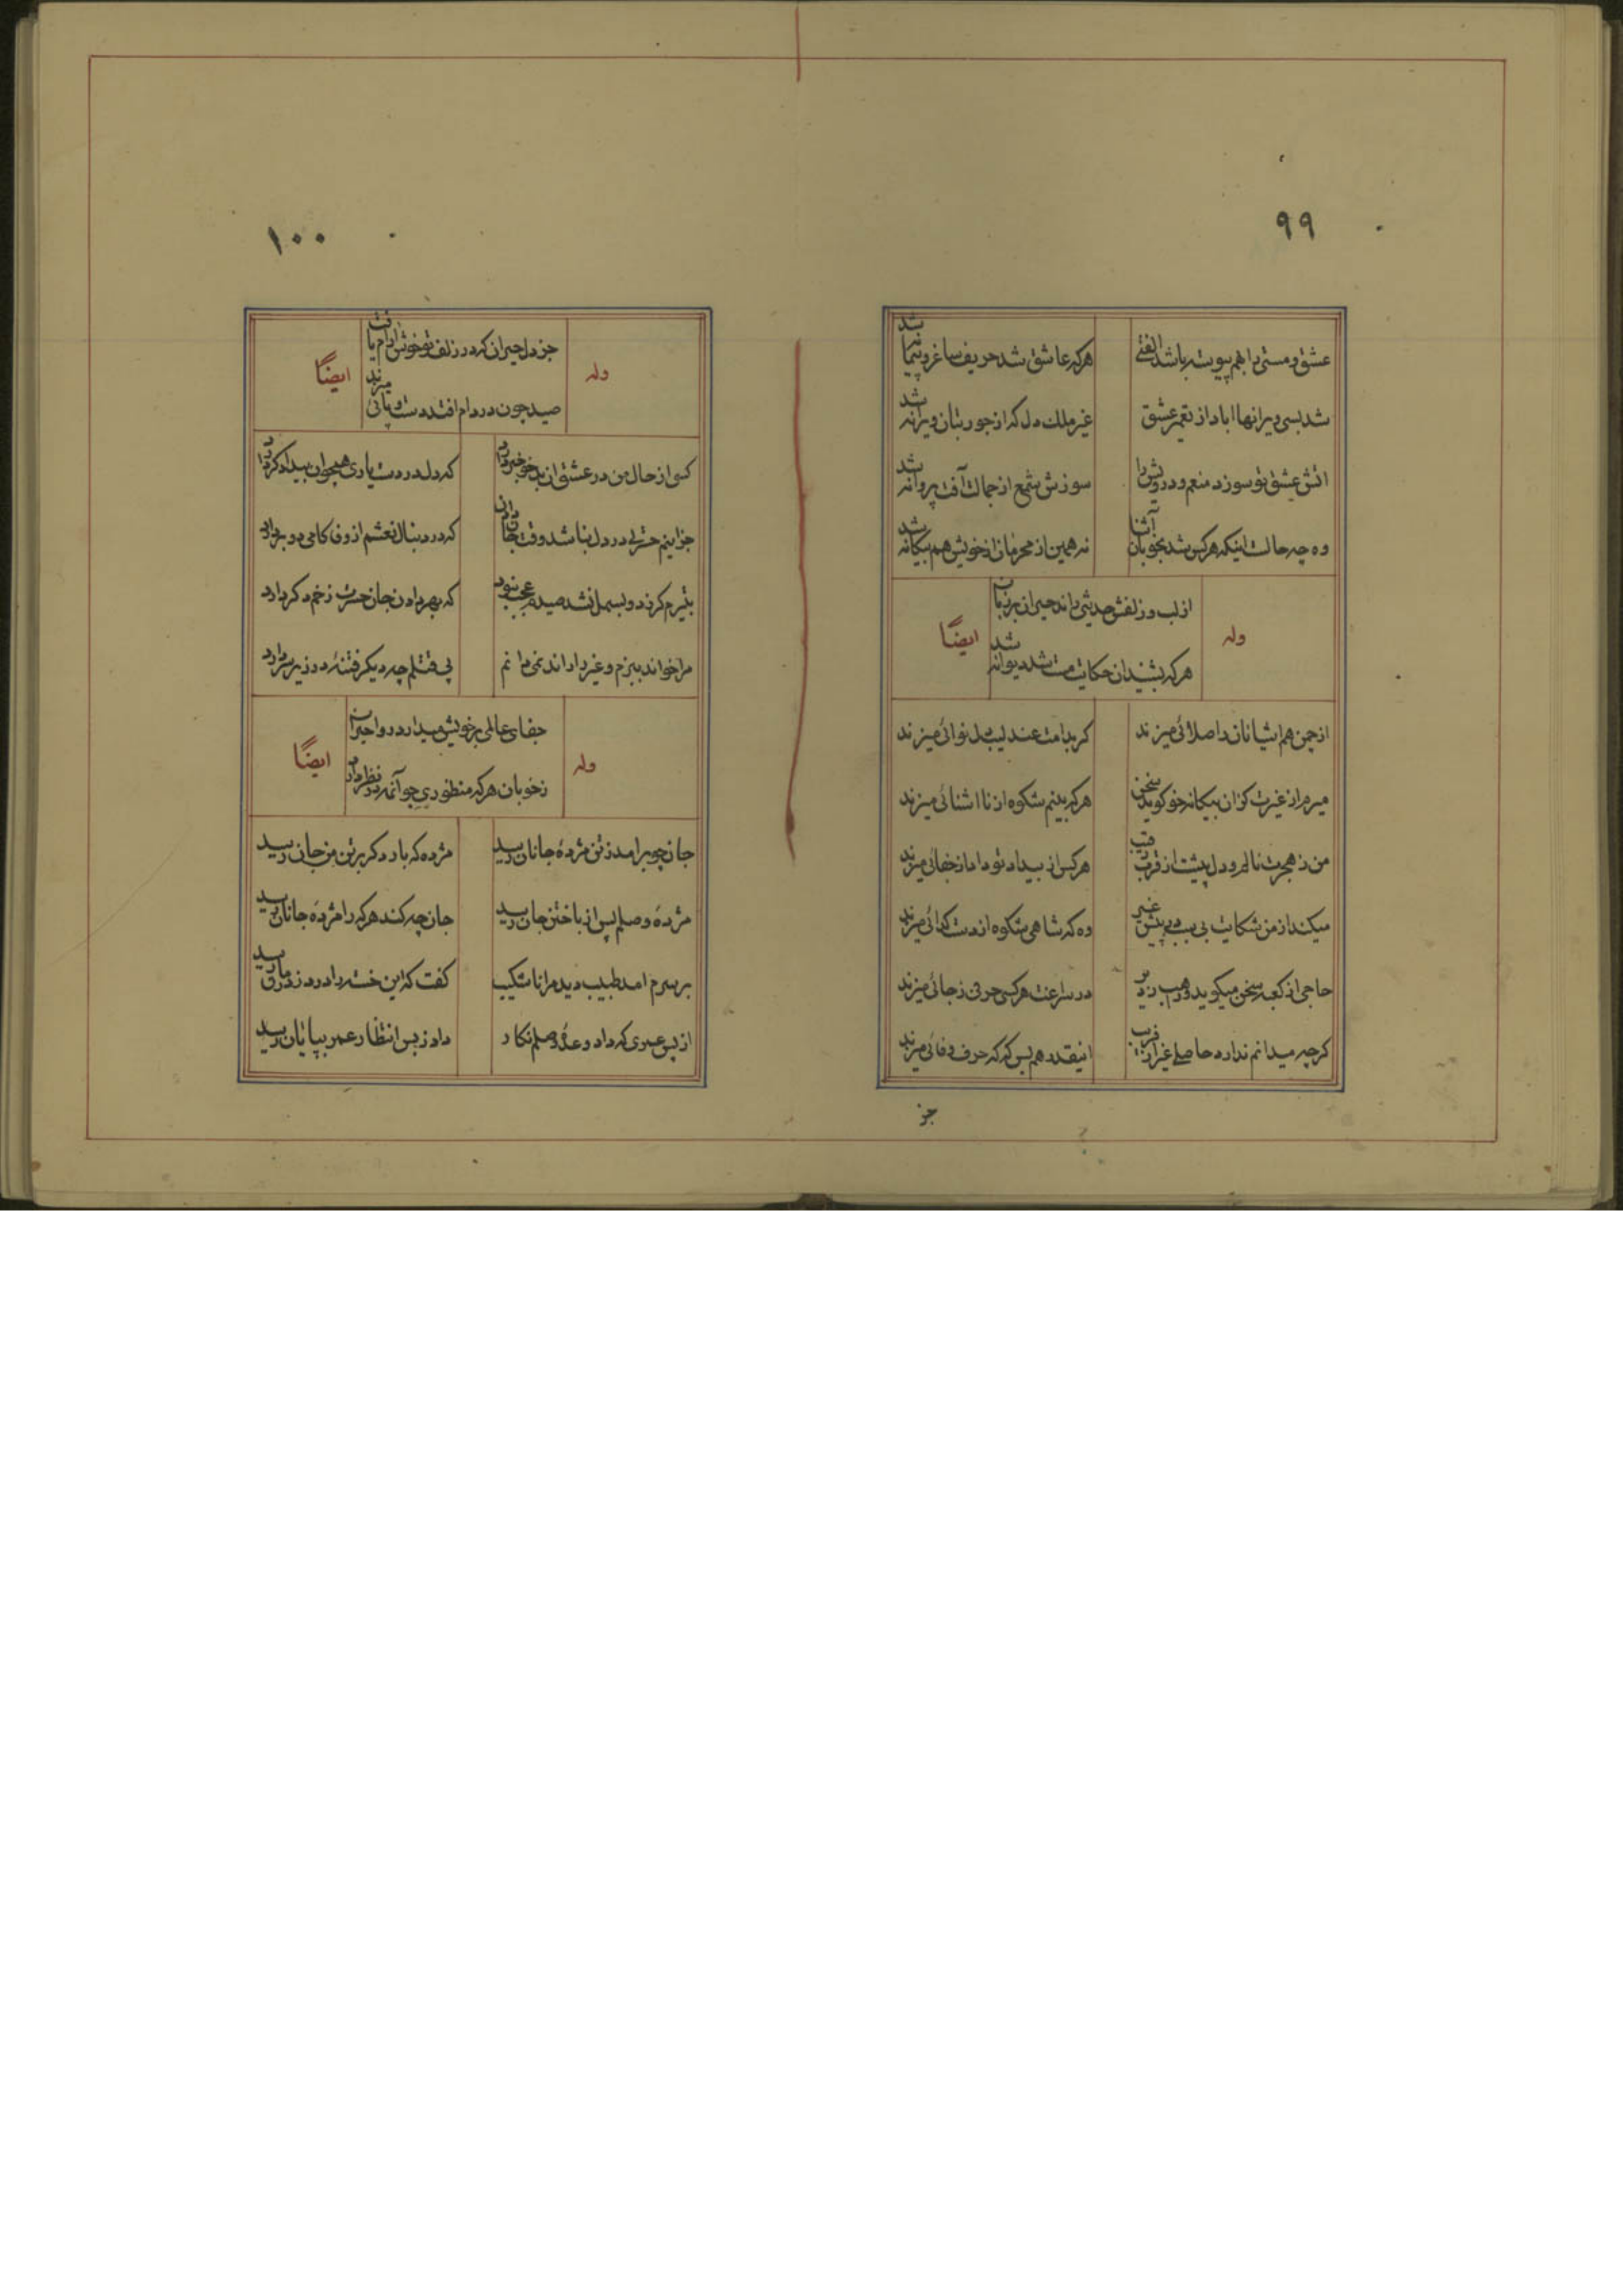 ۹۹
عشق و مستی را بهم پیوسته باشد الفتی
هرکه عاشق شد حریف ساغر و پیمانه شد
شد بسی ویرانها اباد از تعمیر عشق
غیر ملک دل که از جور بتان ویرانه شد
اتش عشق تو سوزد منعم و درویش را
سوزش شمع از جمالت آفت پروانه شد
وه چه حالست اینکه هرکس شد بخوبان آشنا
نه همین از محرمان از خویش هم بیکانه شد
وله
از لب و زلفش حدیثی راند حیران بر زبان
هرکه بشنید ان حکایت مست شد دیوانه شد
ایضاً
از چمن هم اشیانان را صلائی میزند
کر بدامت عندلیب دل نوائی میزند
میرم از غیرت کزان بیکانه خو کوید سخن
هرکه بینم شکوه از نااشنائی میزند
من ز هجرت نالم و دل پیشت از قرب رقیب
هرکس از بیداد تو داد از جفائی میزند
میکند از من شکایت بی سبب در پیش غیر
وه که شاهی شکوه از دست کدائی میزند
حاجی از کعبه سخن میکوید و راهب ز دیر
در سراغت هرکسی حرفی ز جائی میزند
کرچه میدانم ندارد حاصلی غیر از فریب
اینقدر هم بس که که حرف وفائی میزند
جز
۱۰۰
وله
جز دل حیران که در زلف تو خوش ارام یافت
صید چون در دام افتد دست و پائی میزند
ایضاً
کسی از حال من در عشق ان بدخو خبر دارد
که دل در دست یاری همچو ان بیدادکر دارد
جز اینم حسرتی در دل نباشد وقت جان دادن
که در دنبال نعشم از وفا کامی دو بردارد
بتیرم کرزد و بسمل نشد صیدم عجب نبود
که بهر دادن جان حسرت زخم دکر دارد
مرا خواند ببزم و غیر را راند نمی دانم
پی قتلم چه دیکر فتنهٔ در زیر سر دارد
وله
جفای عالمی بر خویش میدارد روا حیران
ز خوبان هرکه منظوری چو آنمه در نظر دارد
ایضاً
جان چو برامد ز تن مژدهٔ جانان رسید
مژده که بار دکر بر تن من جان رسید
مژدهٔ وصلم پس از باختن جان رسید
جان چه کند هرکه را مژدهٔ جانان رسید
بر سرم امد طبیب دید مرا ناشکیب
کفت که این خسته را درد ز درمان رسید
از پس عمری که داد وعدهٔ وصلم نکار
داد ز بس انتظار عمر بپایان رسید